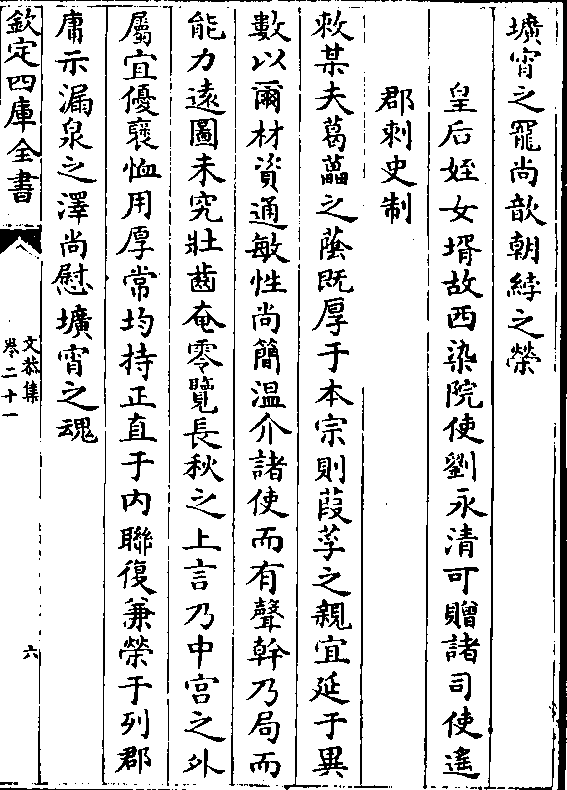 壙宵之寵尚歆朝綍之榮
皇后姪女壻故西染院使劉永清可贈諸司使遙
郡刺史制
敕某夫葛藟之蔭既厚于本宗則葭莩之親宜延于異
數以爾材資通敏性尚簡温介諸使而有聲幹乃局而
能力遠圖未究壯齒奄零覽長秋之上言乃中宫之外
屬宜優襃恤用厚常均持正直于内聯復兼榮于列郡
庸示漏泉之澤尚慰壙宵之魂
欽定四庫全書
文恭集
卷二十一
六